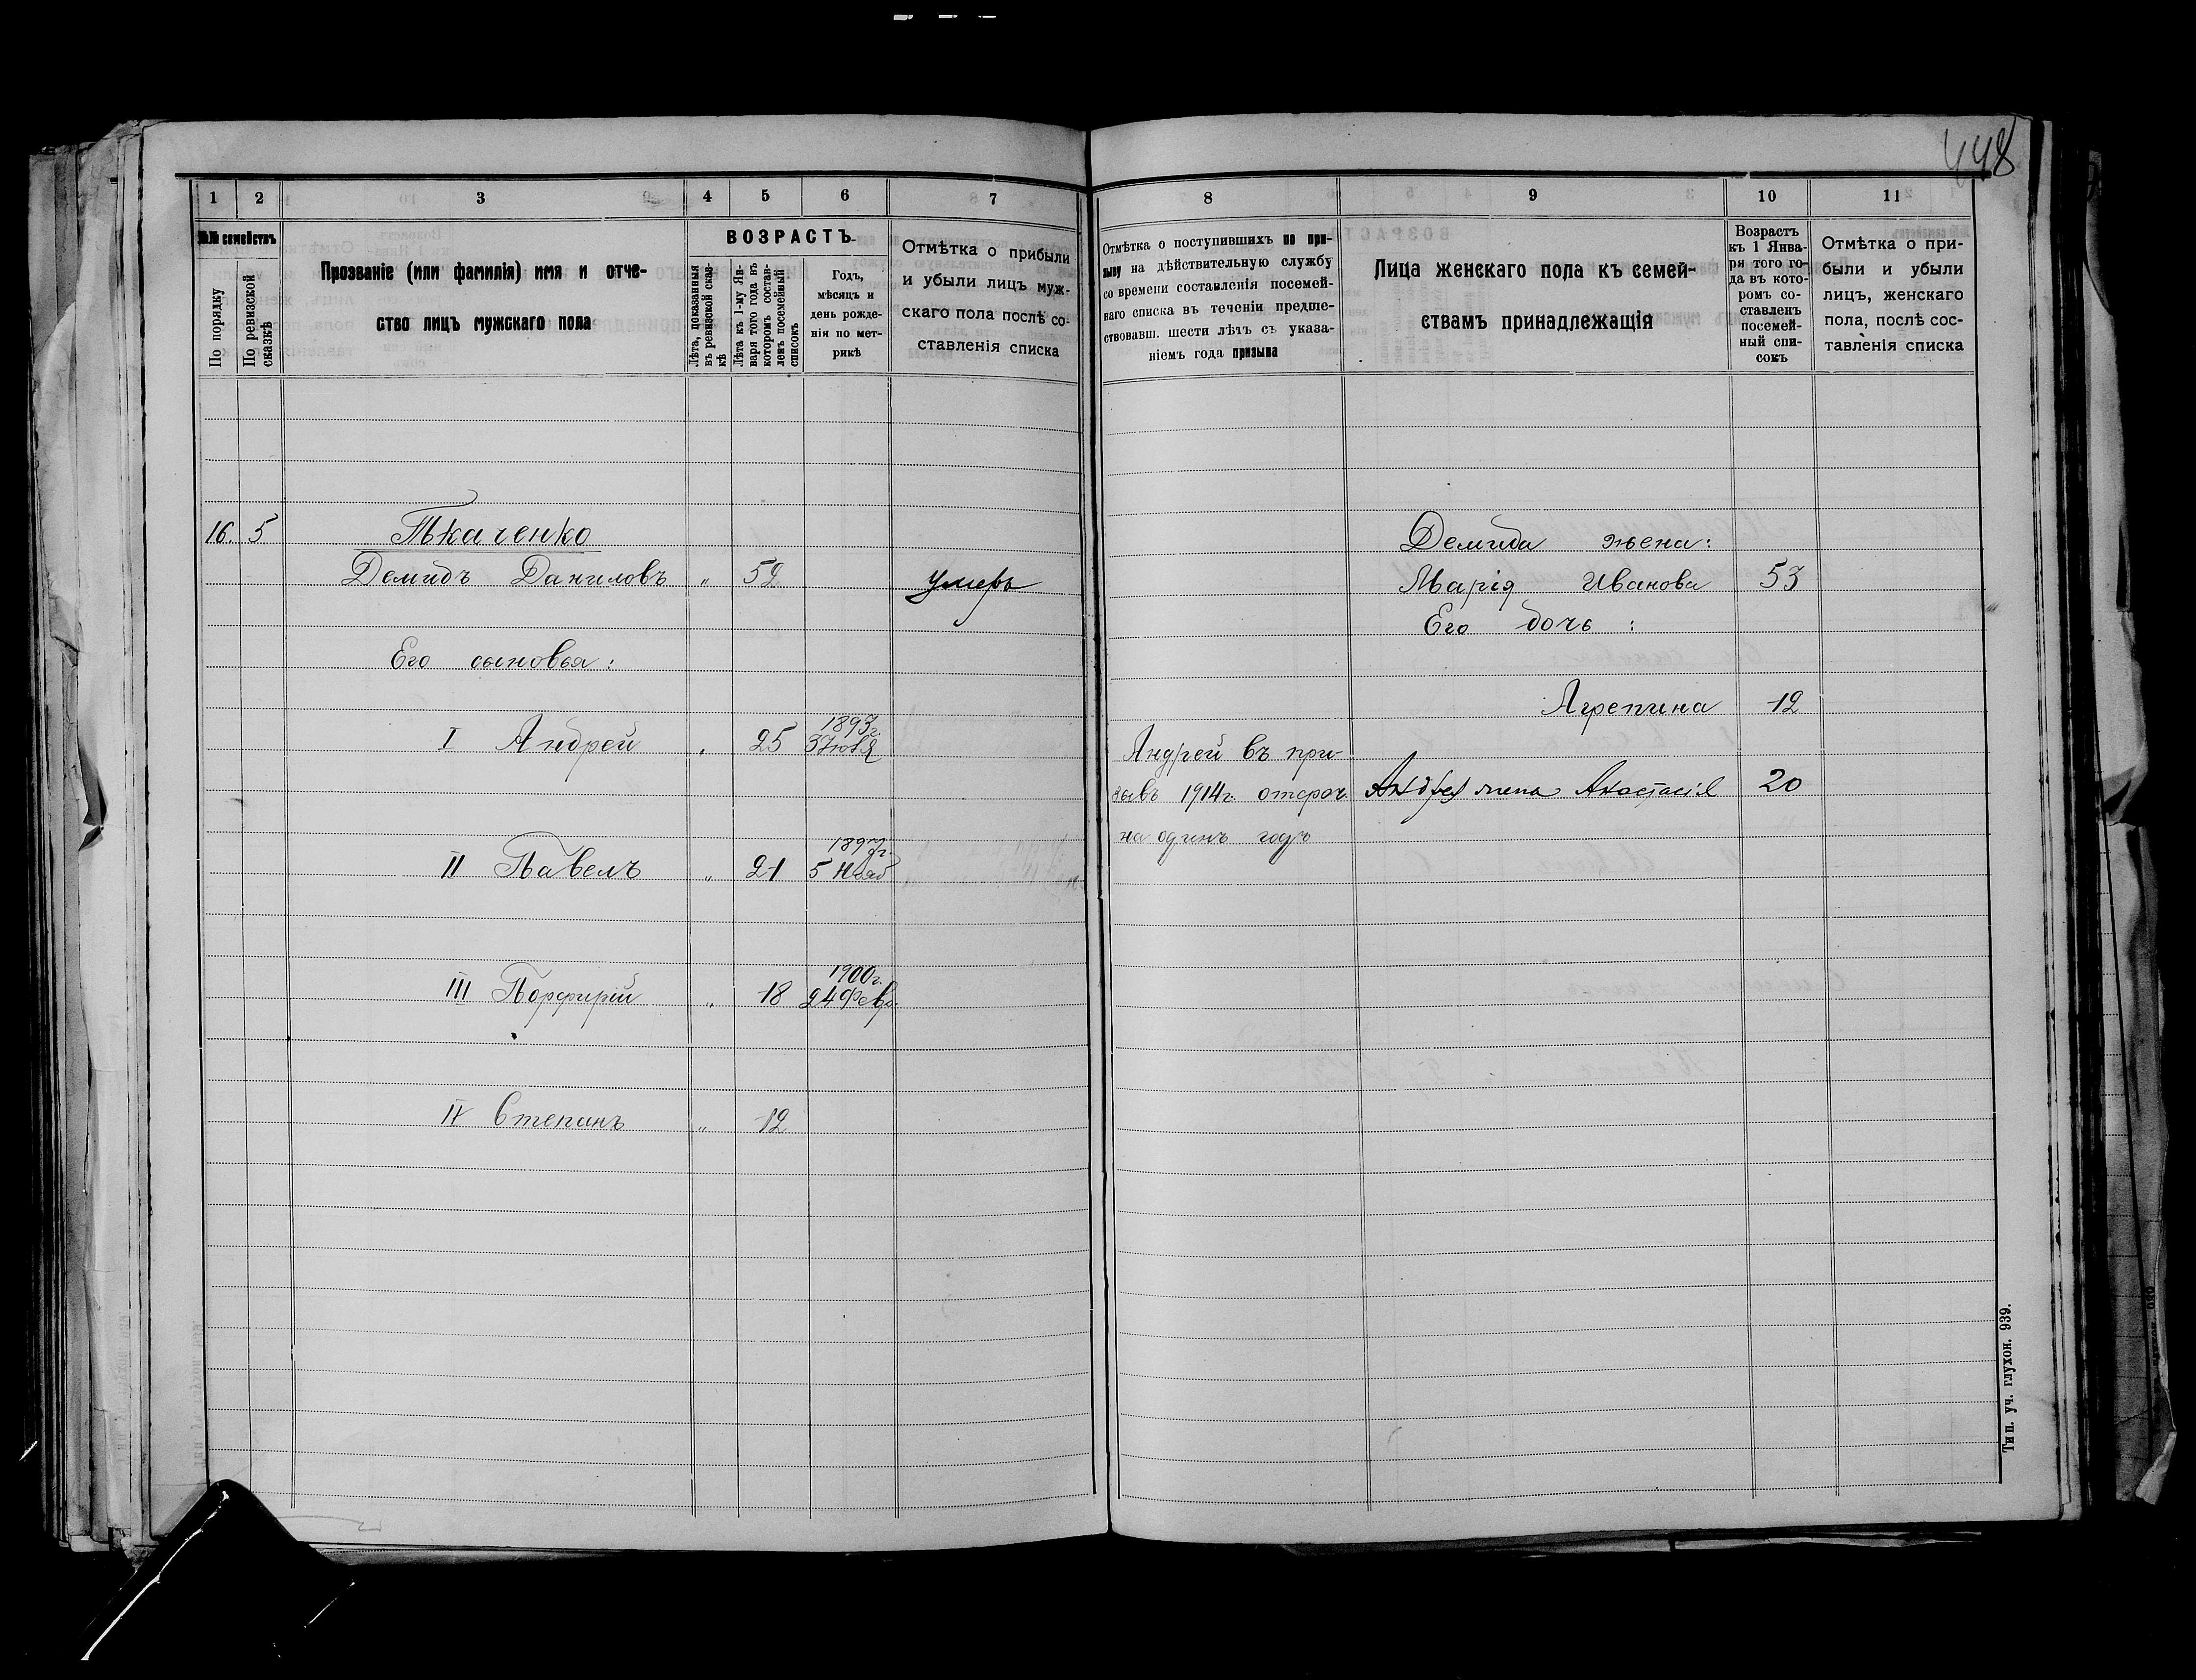 448
1 2 3 4 5 6 7
№№ семействъ
По порядку
По ревизской сказкѣ
Прозваніе (или фамилія) имя и отче-
ство лицъ мужскаго пола
ВОЗРАСТЪ
Лѣта, показанныя
въ ревизской сказ-
кѣ
Лѣта къ 1-му Ян-
варя того года въ
которомъ состав-
ленъ посемейный
списокъ
Годъ,
мѣсяцъ и
день рожде-
нія по мет-
рикѣ
Отмѣтка о прибыли
и убыли лицъ муж-
скаго пола послѣ со-
ставленія списка
16. 5 Ткаченко
Демидъ Даниловъ " 52 умеръ
Его сыновья:
1893г.
I Андрей " 25
1897г.
II Павелъ " 21 5 Нояб
1900г.
III Порфирій " 18 24 Февр.
IV Степанъ " 12
8 9 10 11
Отмѣтка о поступившихъ по при-
зыву на дѣйствительную службу
со времени составленія посемей-
наго списка въ теченіи предше-
ствовавш. шести лѣтъ съ указа-
ніемъ года призыва
Лица женскаго пола къ семей-
ствамъ принадлежащія
Возрастъ
къ 1 Янва-
ря того го-
да въ кото-
ромъ со-
ставленъ
посемей-
ный спи-
сокъ
Отмѣтка о при-
были и убыли
лицъ, женскаго
пола, послѣ сос-
тавленія списка
Демида жена:
Марія Иванова 53
Его дочь :
Агрепина 12
Андрей въ при-
зывъ 1914г. отсроч.
на одинъ годъ
Андрея жена Анастасія 20
Тип. уч. глухон. 939.